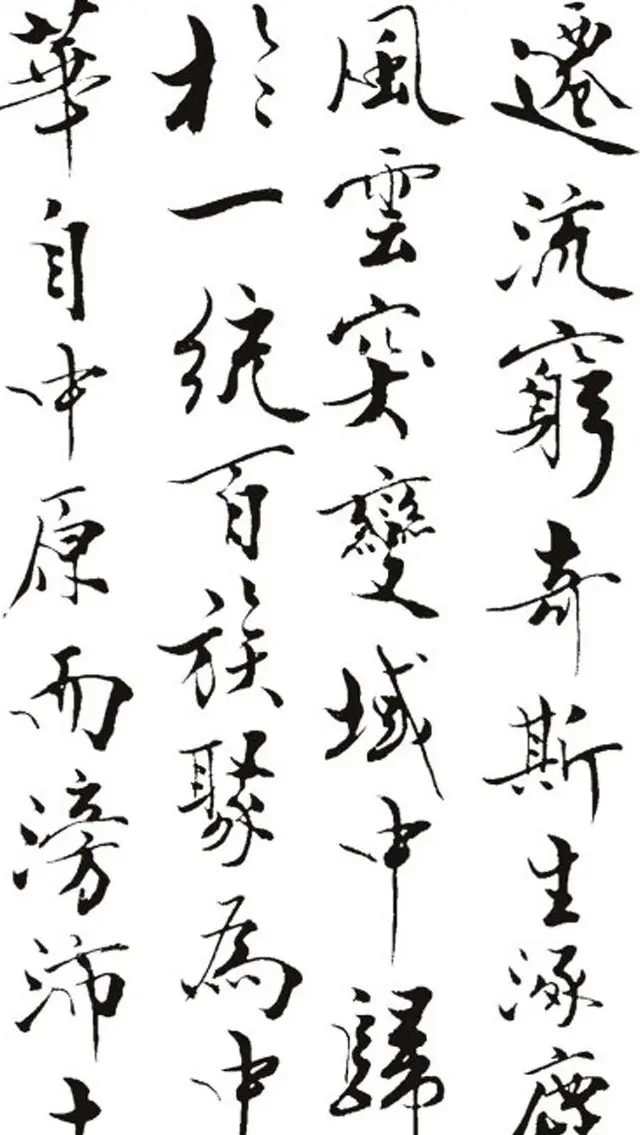 遷流窮奇斯生涿鹿
風雲突變域中歸
於一統百族聚為中
華自中原而滂沛